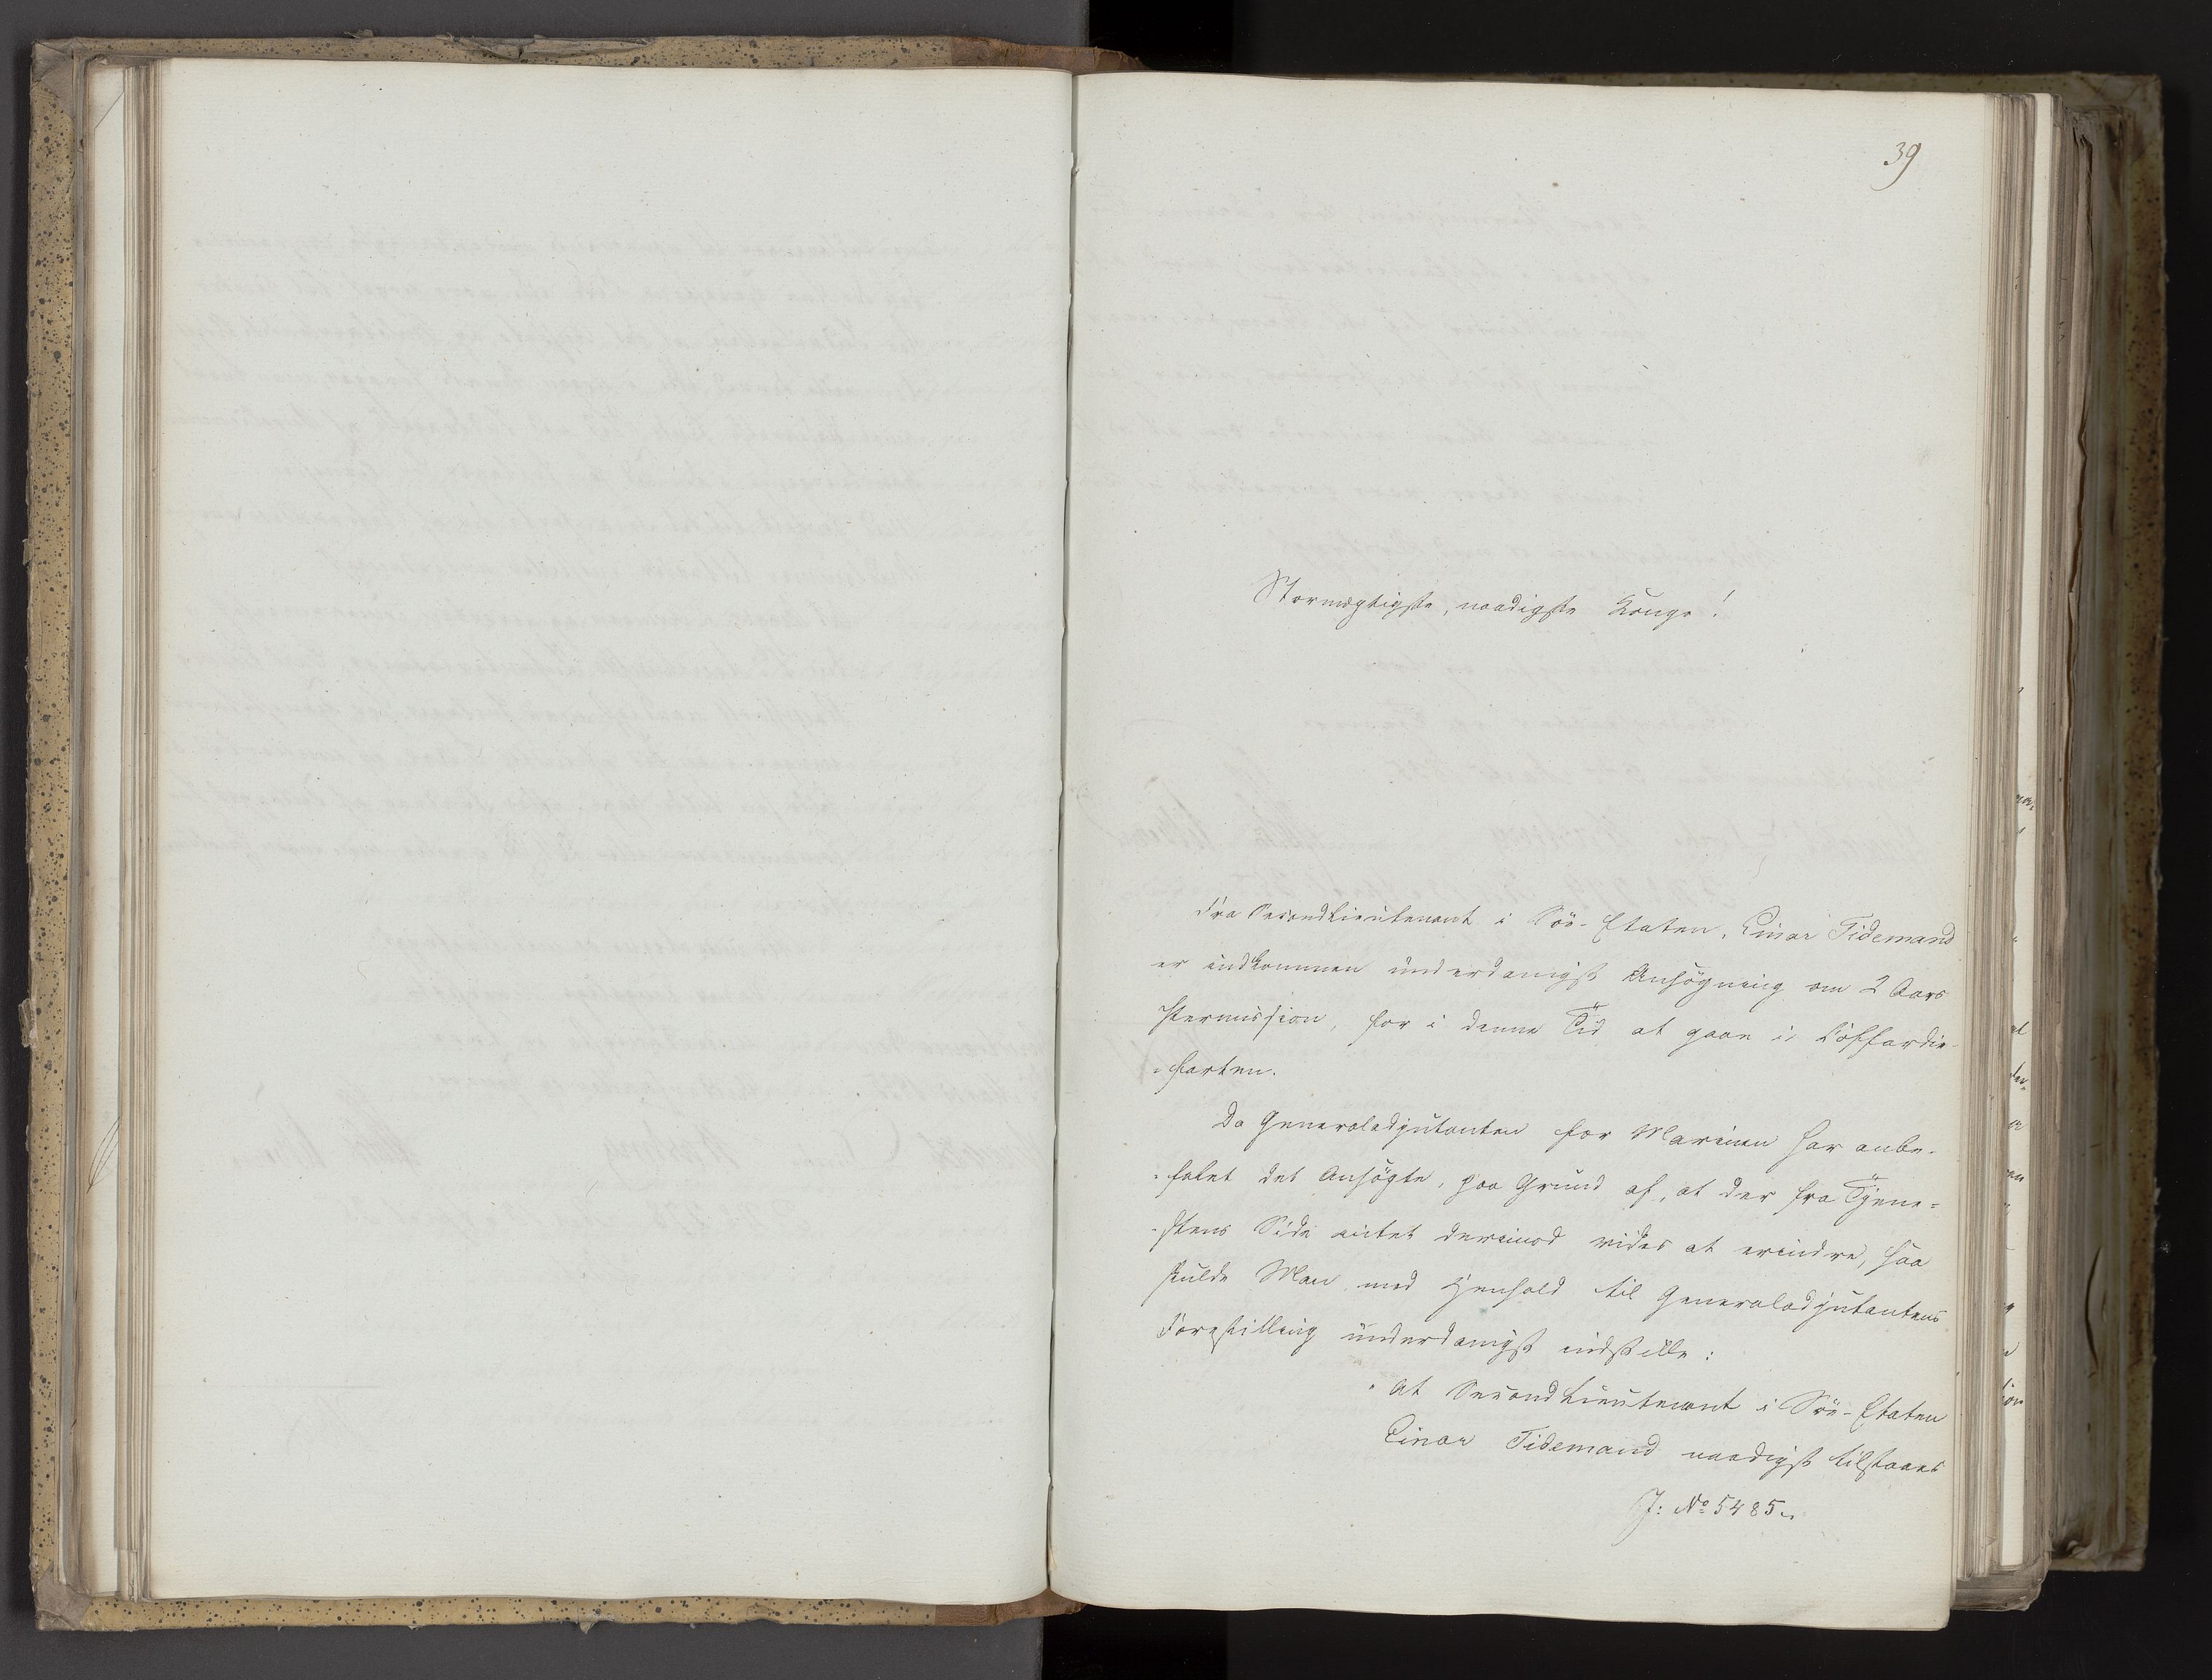 39
Stormægtigste, naadigste Konge!
Fra Secondlieutenant i Söe-Etaten, Einar Tidemand
er indkommen underdanigst Ansögning om 2 Aars
Permission, for i denne Tid at gaae i Coffardie-
-farten.
Da Generaladjutanten for Marinen har anbe-
-falet det Ansögte, paa Grund af, at der fra Tjene-
-stens Side intet derimod vides at erindre, saa
skulde Man med Henhold til Generaladjutantens
Forestilling underdanigst indstille:
"At Secondlieutenant i Söe-Etaten
Einar Tidemand naadigst tilstaaes
J: No 5485.